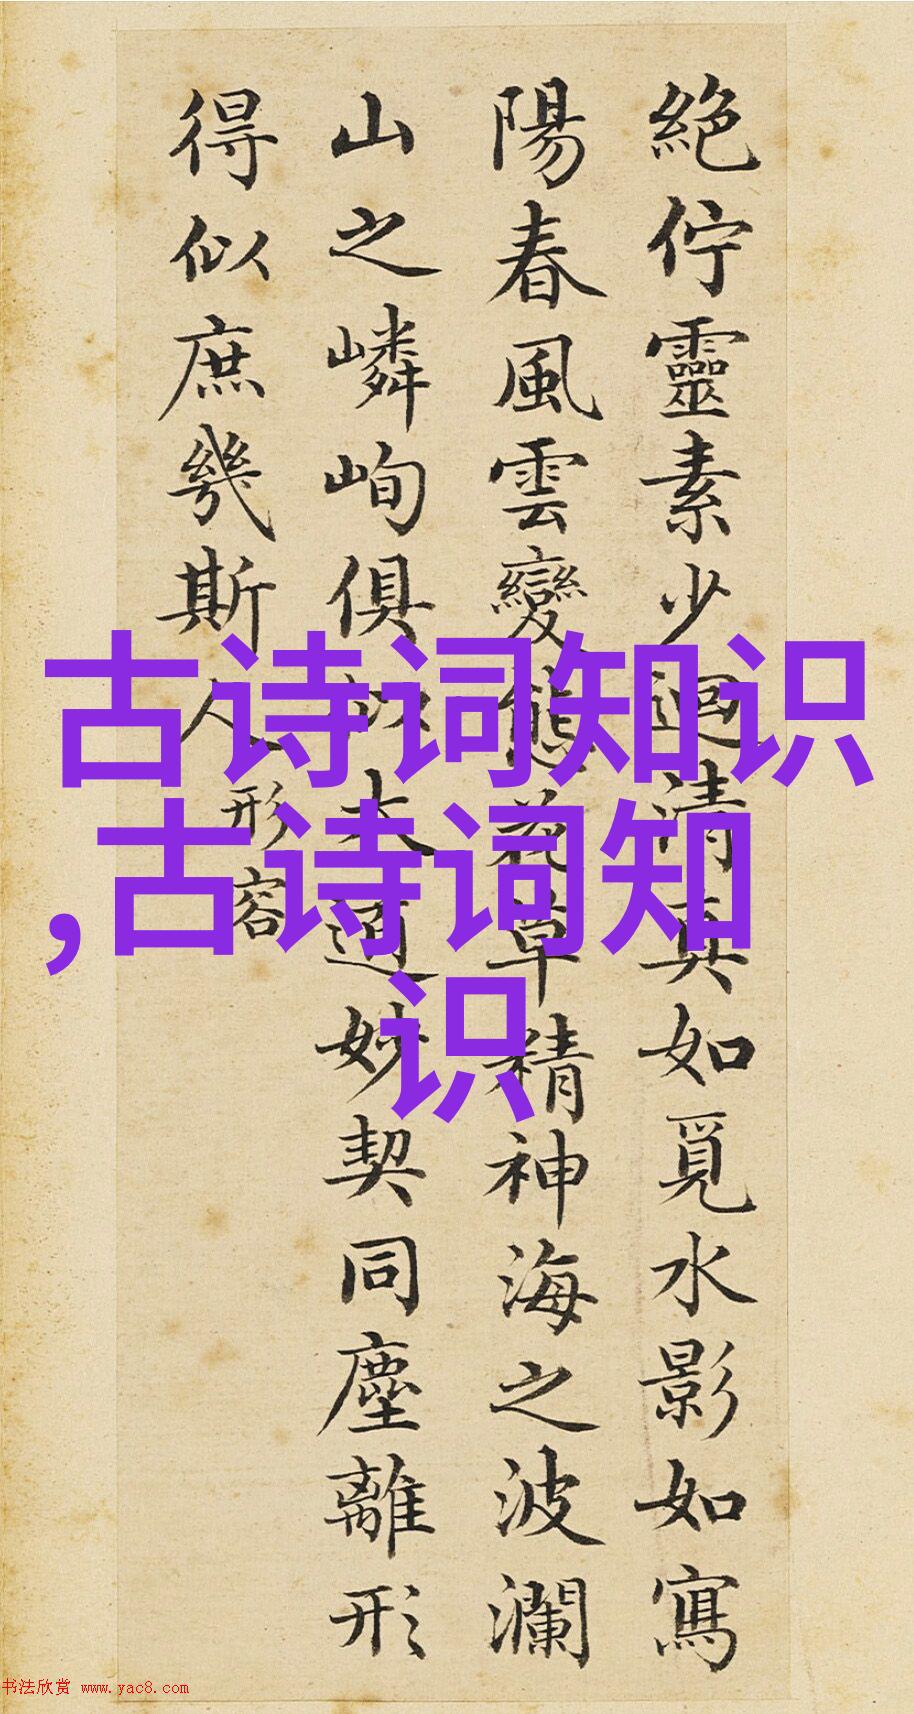 絕佇靈素少迴清真如覓水影如寫
陽春風雲變態花草精神海之波瀾
山之嶙峋俱似大道妙契同塵離形
得似庶幾斯人
形容
古诗词知识
,古诗词知
识
书法欣赏 www.yac8.com